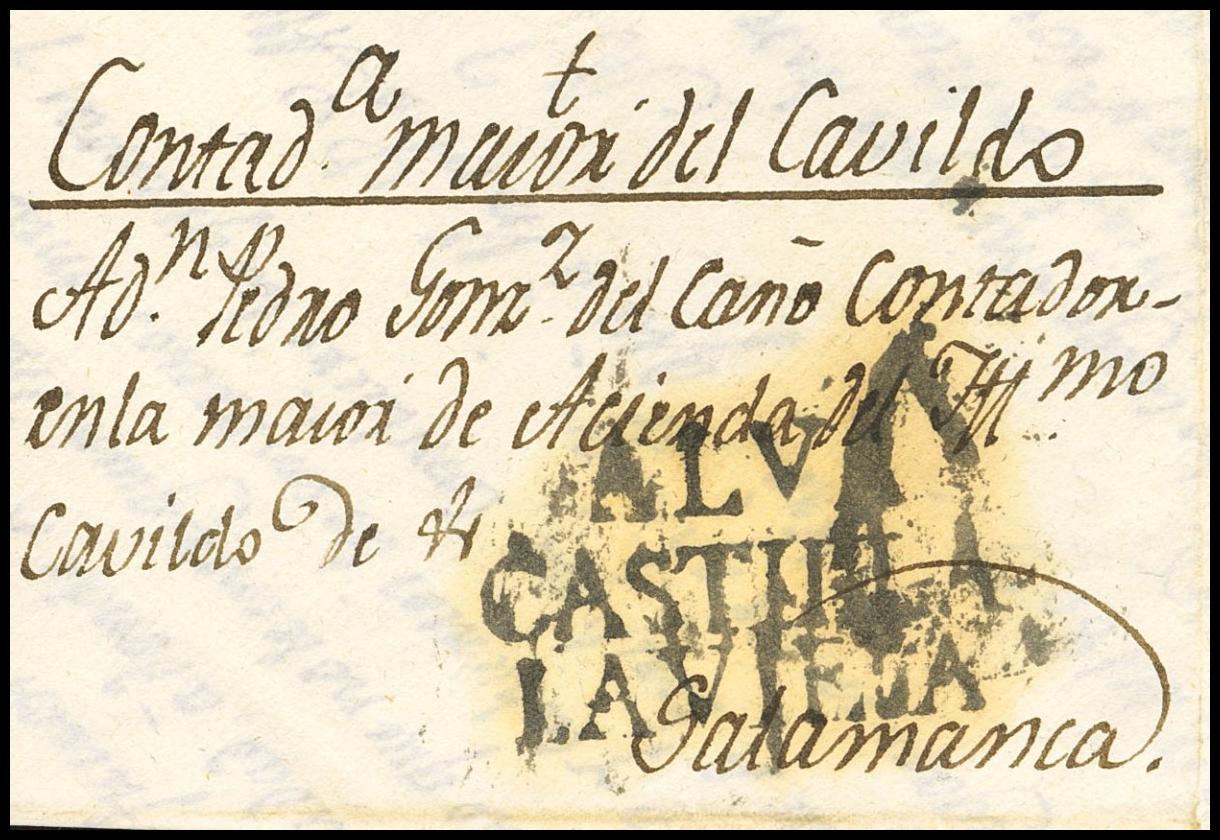 Contad.ª maior del Cavildo
A d.ⁿ Pedro Gom.ᶻ del Caño Contador-
en la maior de Acienda del Ill.ᵐᵒ
Cavildo de &
ALV
CASTILLA
LA VIEJA
Salamanca.